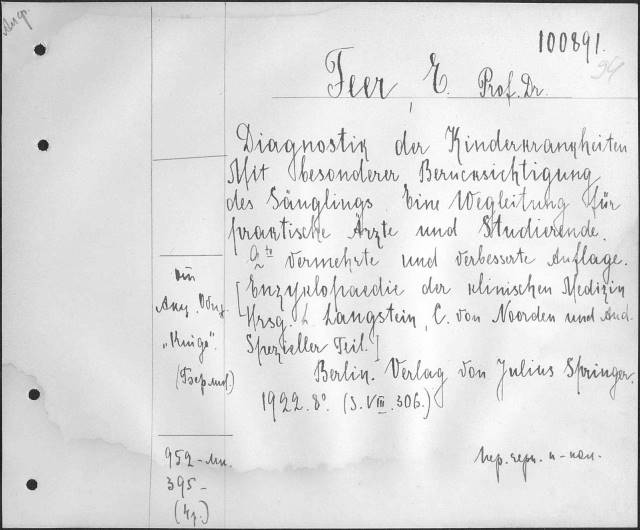 100891.
94
Feer, E. Prof. Dr.
Diagnostik der Kinderkrankheiten
Mit besonderer Berucksichtigung
des Säuglings Eine Wegleitung für
praktische Ärzte und Studierende.
2te vermehrte und verbesserte Auflage.
[Enzyklopaedie der klinischen Medizin
Hrsg. L. Langstein, C. von Noorden und And.
Spezieller Teil.]
Berlin. Verlag von Julius Springer.
1922. 8° (S. VIII. 306.)
Акц. Общ.
„Книга".
(Берлин)
952 -
395 -
пер. черн. к-кол.